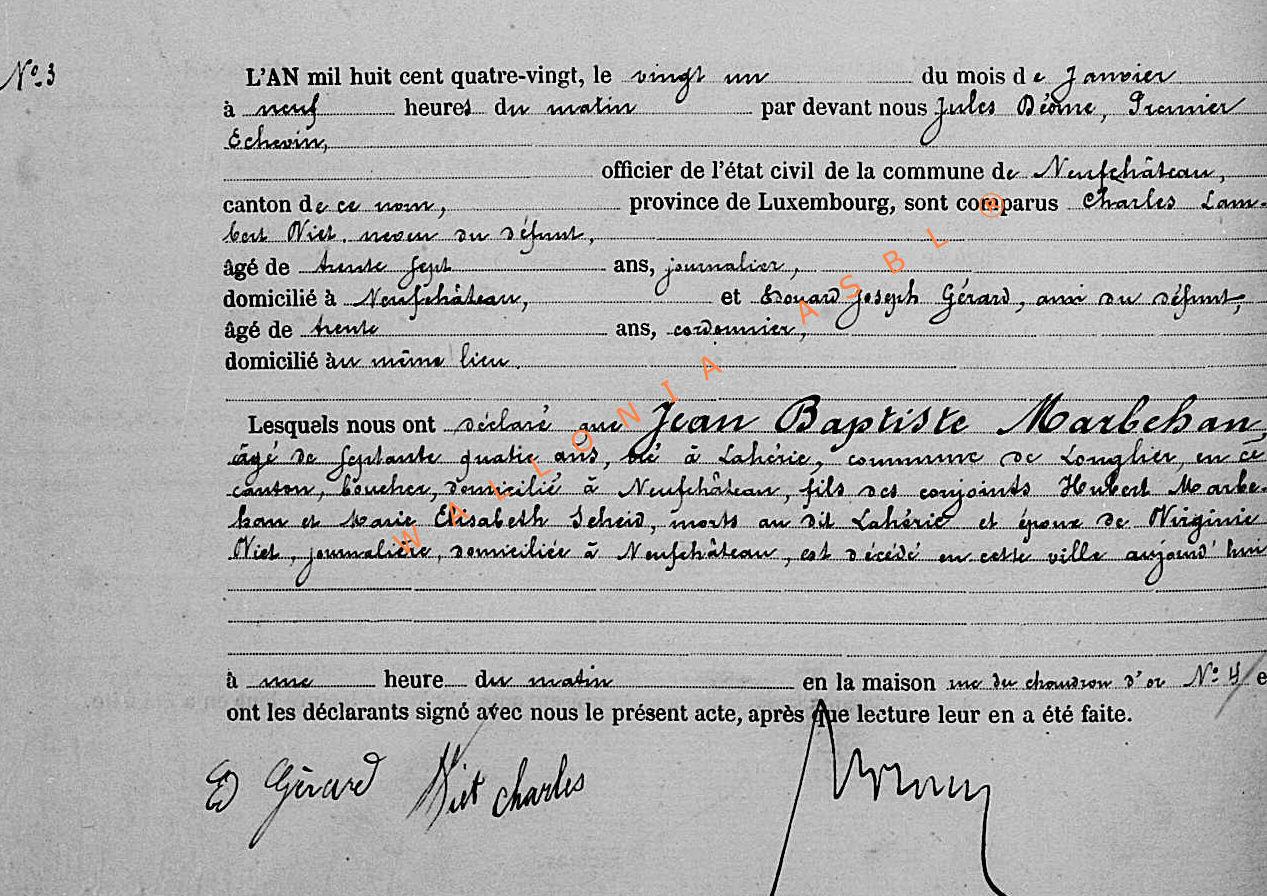 N° 3
L'AN mil huit cent quatre-vingt, le vingt un du mois de Janvier
à neuf heures du matin par devant nous Jules Déome, Premier
Echevin,
officier de l'état civil de la commune de Neufchâteau,
canton de ce nom, province de Luxembourg, sont comparus Charles Lam-
bert Niet, neveu du défunt,
âgé de trente sept ans, journalier,
domicilié à Neufchâteau, et Edouard Joseph Gérard, ami du défunt,
âgé de trente ans, cordonnier,
domicilié au même lieu.
Lesquels nous ont déclaré que Jean Baptiste Marbehan,
âgé de septante quatre ans, né à Lahérie, commune de Longlier, en ce
canton, boucher, domicilié à Neufchâteau, fils des conjoints Hubert Marbe-
han et Marie Elisabeth Scheid, morts au dit Lahérie et époux de Virginie
Niet, journalière, domiciliée à Neufchâteau, est décédé en cette ville aujourd'hui
à une heure du matin en la maison rue du chaudron d'or N° 4 e
ont les déclarants signé avec nous le présent acte, après que lecture leur en a été faite.
Ed Gérard Niet charles
WALLONIA ASBL ©